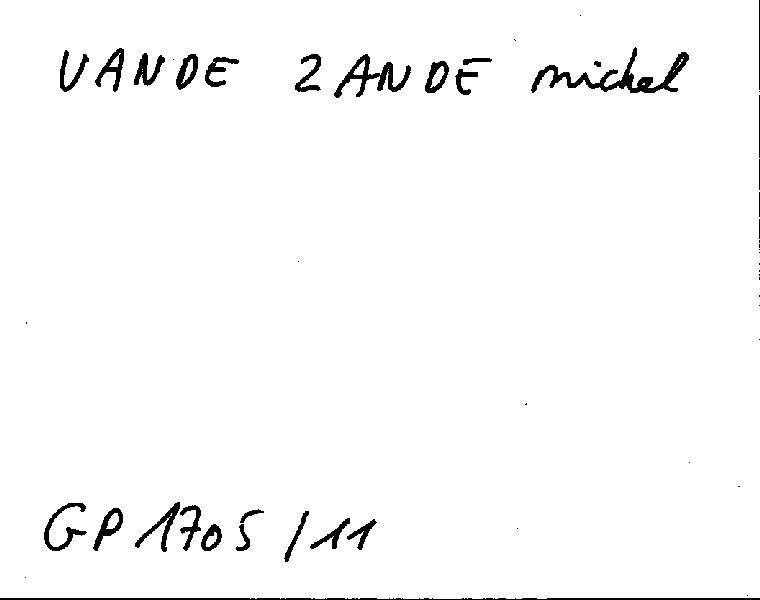 VANDE ZANDE michel
GP 1705 / 11